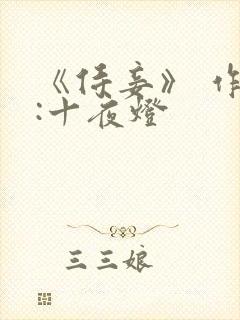 《侍妾》 作
:十夜燈
三三娘